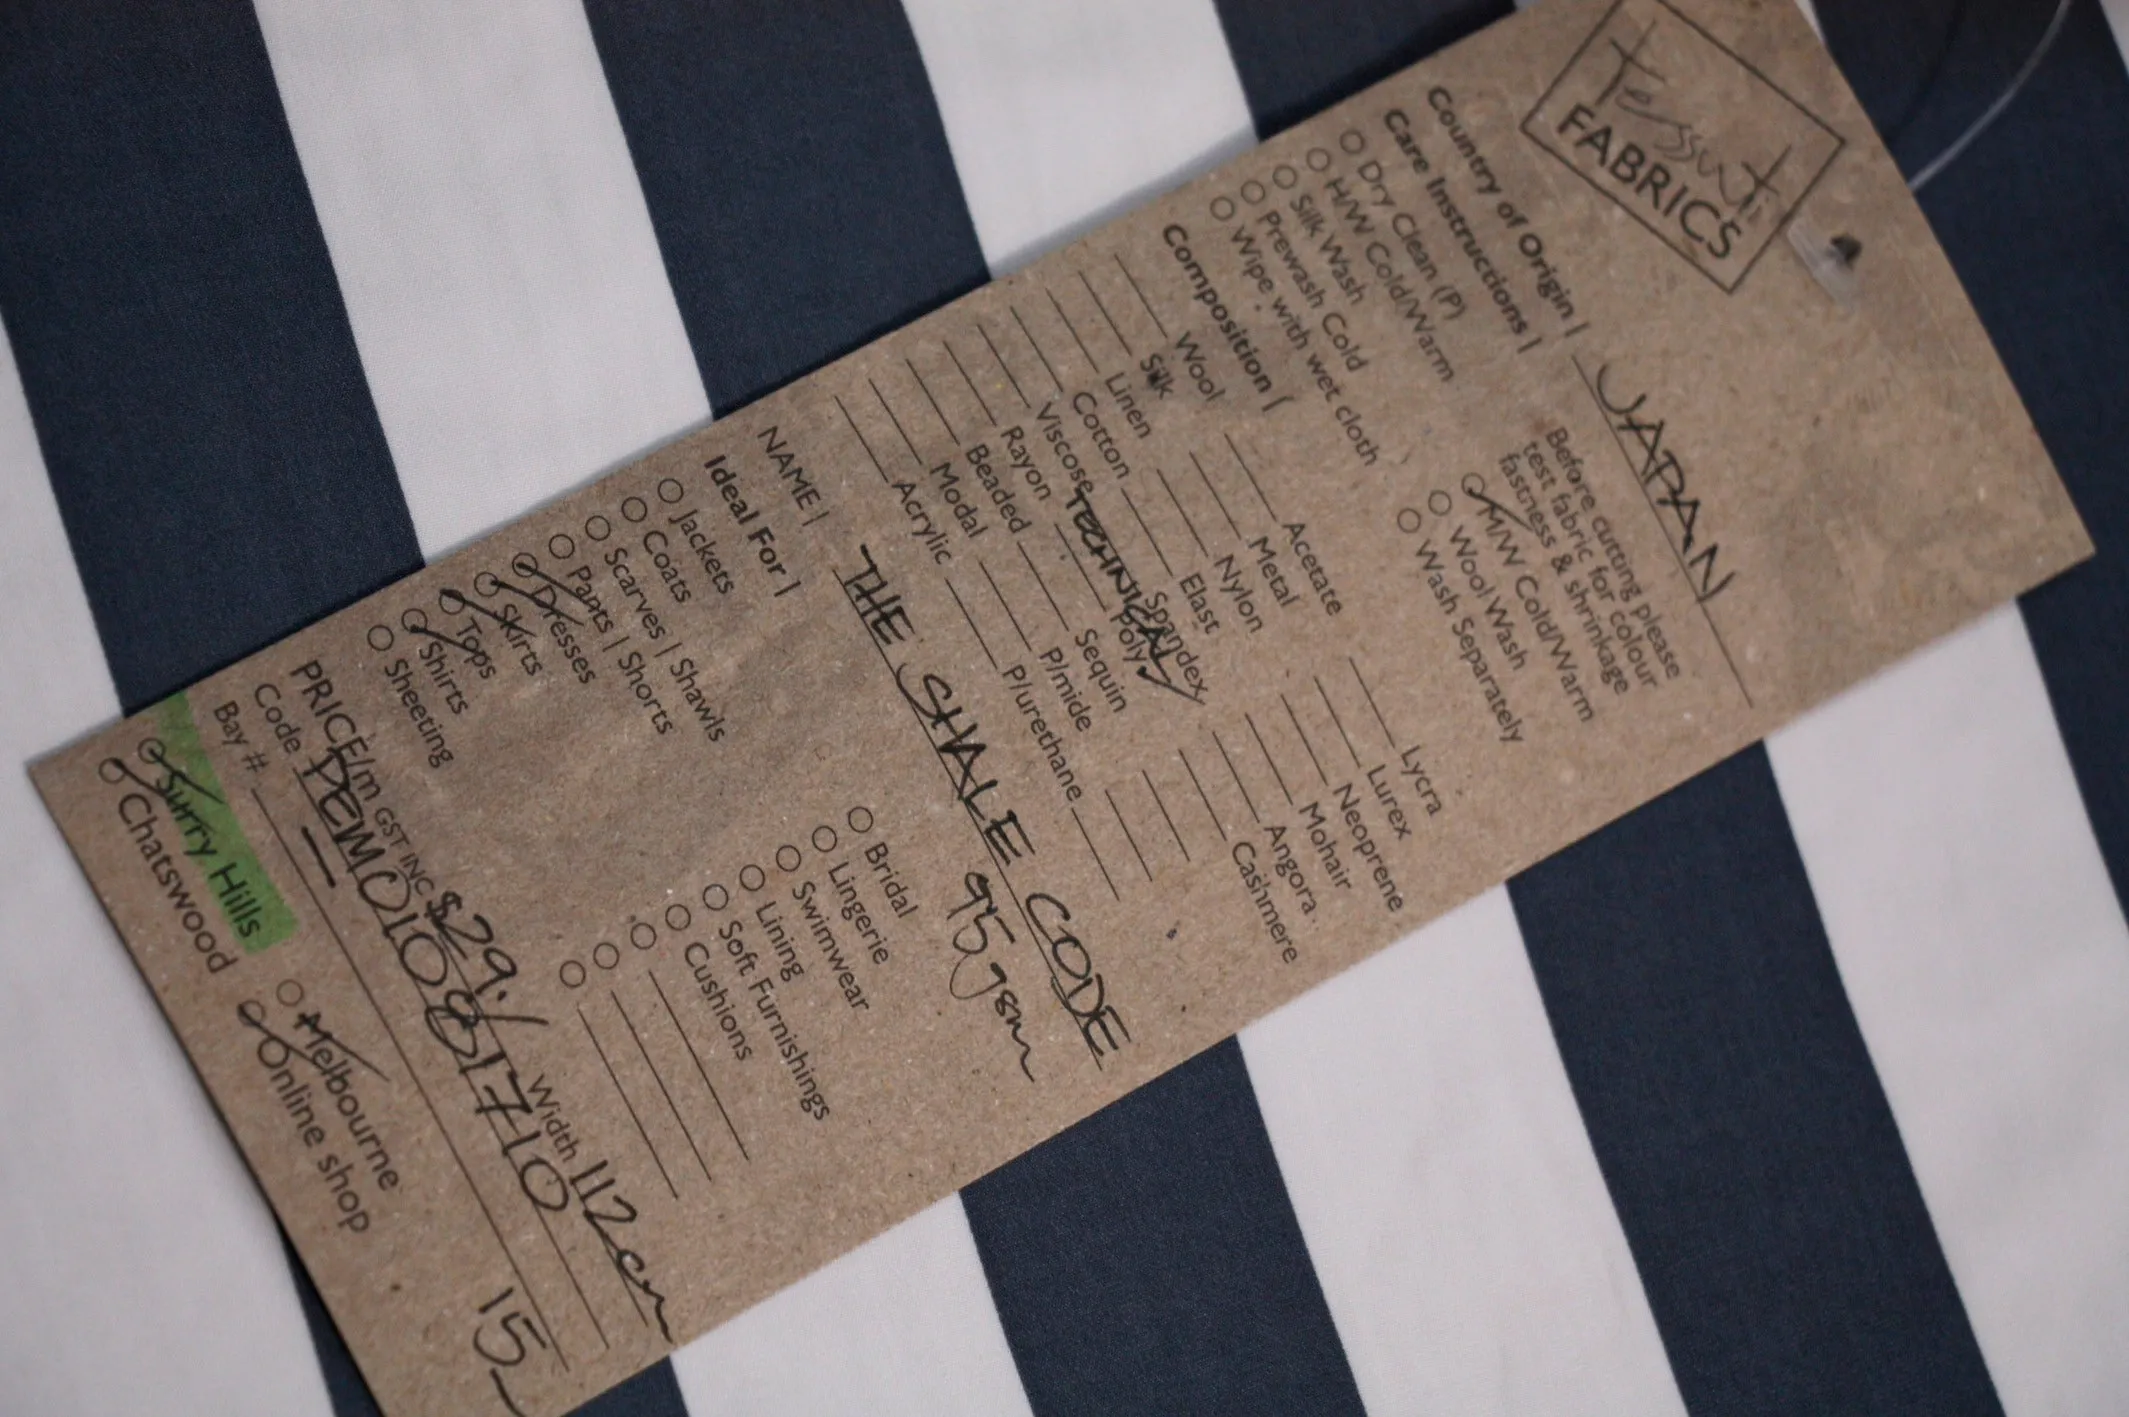 Tessuti
FABRICS
Country of Origin | JAPAN
Care Instructions |
Before cutting please
test fabric for colour
fastness & shrinkage
Dry Clean (P)
H/W Cold/Warm
Silk Wash
Prewash Cold
Wipe with wet cloth
M/W Cold/Warm
Wool Wash
Wash Separately
Composition |
Wool
Silk
Linen
Cotton
Viscose
Rayon
Beaded
Modal
Acrylic
Acetate
Metal
Nylon
Elast
Spandex
TECHNICAL
Poly
Sequin
P/mide
P/urethane
Lycra
Lurex
Neoprene
Mohair
Angora
Cashmere
NAME | THE SHALE CODE
95gsm
Ideal For |
Jackets
Coats
Scarves | Shawls
Pants | Shorts
Dresses
Skirts
Tops
Shirts
Sheeting
Bridal
Lingerie
Swimwear
Lining
Soft Furnishings
Cushions
PRICE/m GST INC $29. Width 112cm
Code
Bay #
15
Surry Hills
Chatswood
Melbourne
Online shop